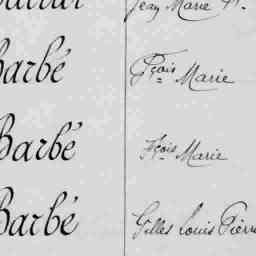 Jean Marie
Barbé Fçois Marie
Barbé Fçois Marie
Barbé Gilles Louis Pierre